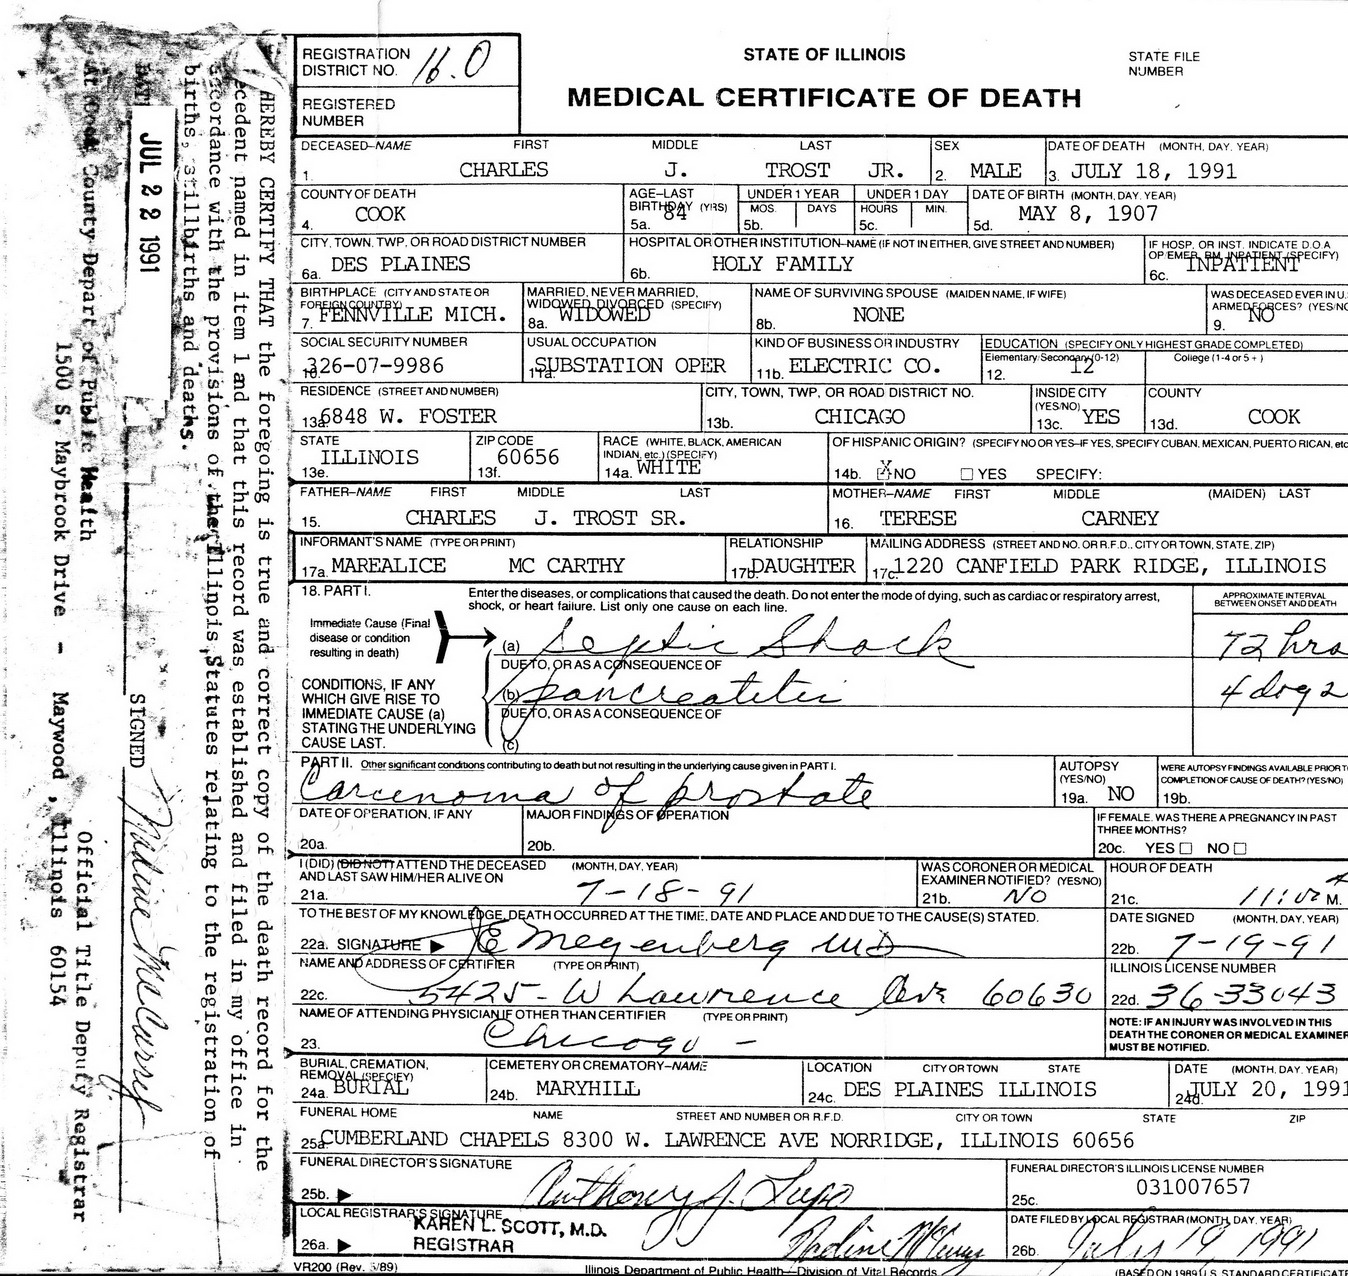 REGISTRATION DISTRICT NO. 16.0
REGISTERED NUMBER
STATE OF ILLINOIS
STATE FILE NUMBER
MEDICAL CERTIFICATE OF DEATH
DECEASED-NAME FIRST MIDDLE LAST SEX DATE OF DEATH (MONTH, DAY, YEAR)
1. CHARLES J. TROST JR. 2. MALE 3. JULY 18, 1991
COUNTY OF DEATH AGE-LAST BIRTHDAY (YRS) UNDER 1 YEAR UNDER 1 DAY DATE OF BIRTH (MONTH, DAY, YEAR)
MOS. DAYS HOURS MIN.
4. COOK 5a. 84 5b. 5c. 5d. MAY 8, 1907
CITY, TOWN, TWP, OR ROAD DISTRICT NUMBER HOSPITAL OR OTHER INSTITUTION-NAME (IF NOT IN EITHER, GIVE STREET AND NUMBER) IF HOSP. OR INST. INDICATE D.O.A OP/EMER. RM. INPATIENT (SPECIFY)
6a. DES PLAINES 6b. HOLY FAMILY 6c. INPATIENT
BIRTHPLACE (CITY AND STATE OR FOREIGN COUNTRY) MARRIED, NEVER MARRIED, WIDOWED, DIVORCED (SPECIFY) NAME OF SURVIVING SPOUSE (MAIDEN NAME, IF WIFE) WAS DECEASED EVER IN U. ARMED FORCES? (YES/NO
7. FENNVILLE MICH. 8a. WIDOWED 8b. NONE 9. NO
SOCIAL SECURITY NUMBER USUAL OCCUPATION KIND OF BUSINESS OR INDUSTRY EDUCATION (SPECIFY ONLY HIGHEST GRADE COMPLETED)
Elementary/Secondary (0-12) College (1-4 or 5+)
10. 326-07-9986 11a. SUBSTATION OPER 11b. ELECTRIC CO. 12. 12
RESIDENCE (STREET AND NUMBER) CITY, TOWN, TWP, OR ROAD DISTRICT NO. INSIDE CITY (YES/NO) COUNTY
13a. 6848 W. FOSTER 13b. CHICAGO 13c. YES 13d. COOK
STATE ZIP CODE RACE (WHITE, BLACK, AMERICAN INDIAN, etc.) (SPECIFY) OF HISPANIC ORIGIN? (SPECIFY NO OR YES-IF YES, SPECIFY CUBAN, MEXICAN, PUERTO RICAN, etc
13e. ILLINOIS 13f. 60656 14a. WHITE 14b. X NO YES SPECIFY:
FATHER-NAME FIRST MIDDLE LAST MOTHER-NAME FIRST MIDDLE (MAIDEN) LAST
15. CHARLES J. TROST SR. 16. TERESE CARNEY
INFORMANT'S NAME (TYPE OR PRINT) RELATIONSHIP MAILING ADDRESS (STREET AND NO. OR R.F.D., CITY OR TOWN, STATE, ZIP)
17a. MAREALICE MC CARTHY 17b. DAUGHTER 17c. 1220 CANFIELD PARK RIDGE, ILLINOIS
18. PART I. Enter the diseases, or complications that caused the death. Do not enter the mode of dying, such as cardiac or respiratory arrest, shock, or heart failure. List only one cause on each line.
APPROXIMATE INTERVAL BETWEEN ONSET AND DEATH
Immediate Cause (Final disease or condition resulting in death)
(a) Septic Shock 72 hrs
DUE TO, OR AS A CONSEQUENCE OF
CONDITIONS, IF ANY WHICH GIVE RISE TO IMMEDIATE CAUSE (a) STATING THE UNDERLYING CAUSE LAST.
(b) pancreatitis 4 days
DUE TO, OR AS A CONSEQUENCE OF
(c)
PART II. Other significant conditions contributing to death but not resulting in the underlying cause given in PART I. AUTOPSY (YES/NO) WERE AUTOPSY FINDINGS AVAILABLE PRIOR TO COMPLETION OF CAUSE OF DEATH? (YES/NO)
Carcenoma of prostate 19a. NO 19b.
DATE OF OPERATION, IF ANY MAJOR FINDINGS OF OPERATION IF FEMALE, WAS THERE A PREGNANCY IN PAST THREE MONTHS?
20a. 20b. 20c. YES NO
I (DID) (DID NOT) ATTEND THE DECEASED (MONTH, DAY, YEAR) AND LAST SAW HIM/HER ALIVE ON WAS CORONER OR MEDICAL EXAMINER NOTIFIED? (YES/NO) HOUR OF DEATH
21a. 7-18-91 21b. NO 21c. M.
TO THE BEST OF MY KNOWLEDGE, DEATH OCCURRED AT THE TIME, DATE AND PLACE AND DUE TO THE CAUSE(S) STATED. DATE SIGNED (MONTH, DAY, YEAR)
22a. SIGNATURE JE Megenberg MD 22b. 7-19-91
NAME AND ADDRESS OF CERTIFIER (TYPE OR PRINT) ILLINOIS LICENSE NUMBER
22c. 5425 - W Lawrence Ave 60630 22d. 36-33043
NAME OF ATTENDING PHYSICIAN IF OTHER THAN CERTIFIER (TYPE OR PRINT)
23. Chicago -
NOTE: IF AN INJURY WAS INVOLVED IN THIS DEATH THE CORONER OR MEDICAL EXAMINER MUST BE NOTIFIED.
BURIAL, CREMATION, REMOVAL (SPECIFY) CEMETERY OR CREMATORY-NAME LOCATION CITY OR TOWN STATE DATE (MONTH, DAY, YEAR)
24a. BURIAL 24b. MARYHILL 24c. DES PLAINES ILLINOIS 24d. JULY 20, 1991
FUNERAL HOME NAME STREET AND NUMBER OR R.F.D. CITY OR TOWN STATE ZIP
25a. CUMBERLAND CHAPELS 8300 W. LAWRENCE AVE NORRIDGE, ILLINOIS 60656
FUNERAL DIRECTOR'S SIGNATURE FUNERAL DIRECTOR'S ILLINOIS LICENSE NUMBER
25b. Anthony J. Lupo 25c. 031007657
LOCAL REGISTRAR'S SIGNATURE DATE FILED BY LOCAL REGISTRAR (MONTH, DAY, YEAR)
26a. KAREN L. SCOTT, M.D. REGISTRAR 26b. July 19, 1991
VR200 (Rev. 5/89) Illinois Department of Public Health-Division of Vital Records (BASED ON 1989 U.S. STANDARD CERTIFICATE
HEREBY CERTIFY THAT the foregoing is true and correct copy of the death record for the
ecedent named in item 1 and that this record was established and filed in my office in
accordance with the provisions of the Illinois Statutes relating to the registration of
births, stillbirths and deaths.
DATE JUL 22 1991 SIGNED
Official Title Deputy Registrar
At Cook County Department of Public Health
1500 S. Maybrook Drive - Maywood, Illinois 60154